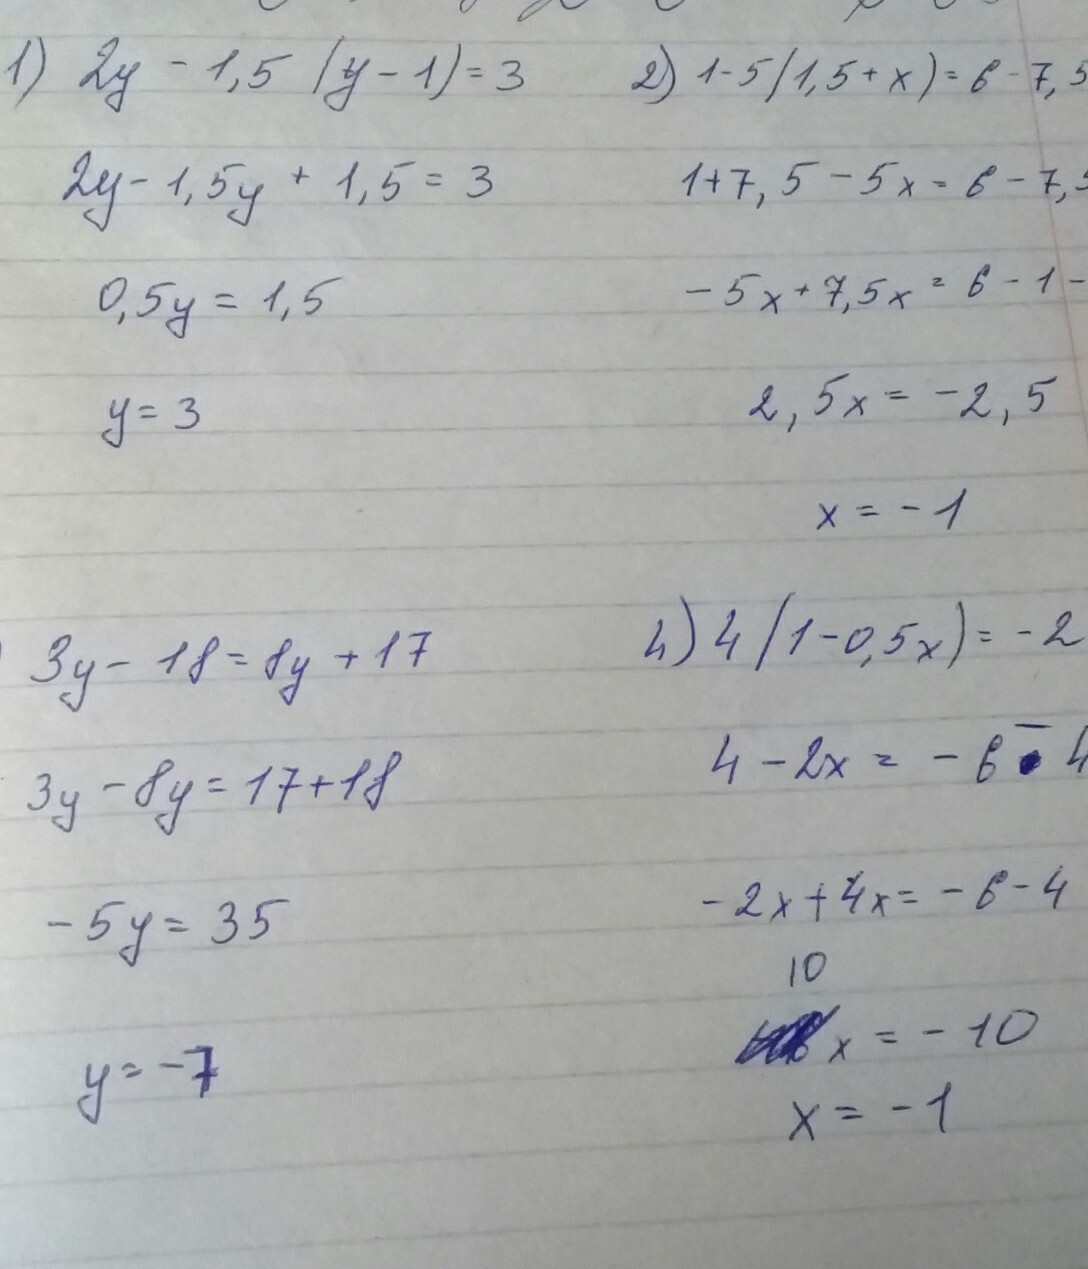 1) 2y - 1,5 (y - 1) = 3
2y - 1,5y + 1,5 = 3
0,5y = 1,5
y = 3
2) 1 - 5(1,5 + x) = 6 - 7,5
1 + 7,5 - 5x = 6 - 7,5
-5x + 7,5x = 6 - 1 -
2,5x = -2,5
x = -1
3y - 18 = 8y + 17
3y - 8y = 17 + 18
-5y = 35
y = -7
4) 4 (1 - 0,5x) = -2
4 - 2x = -6 - 4
-2x + 4x = -6 - 4
10
x = -10
x = -1